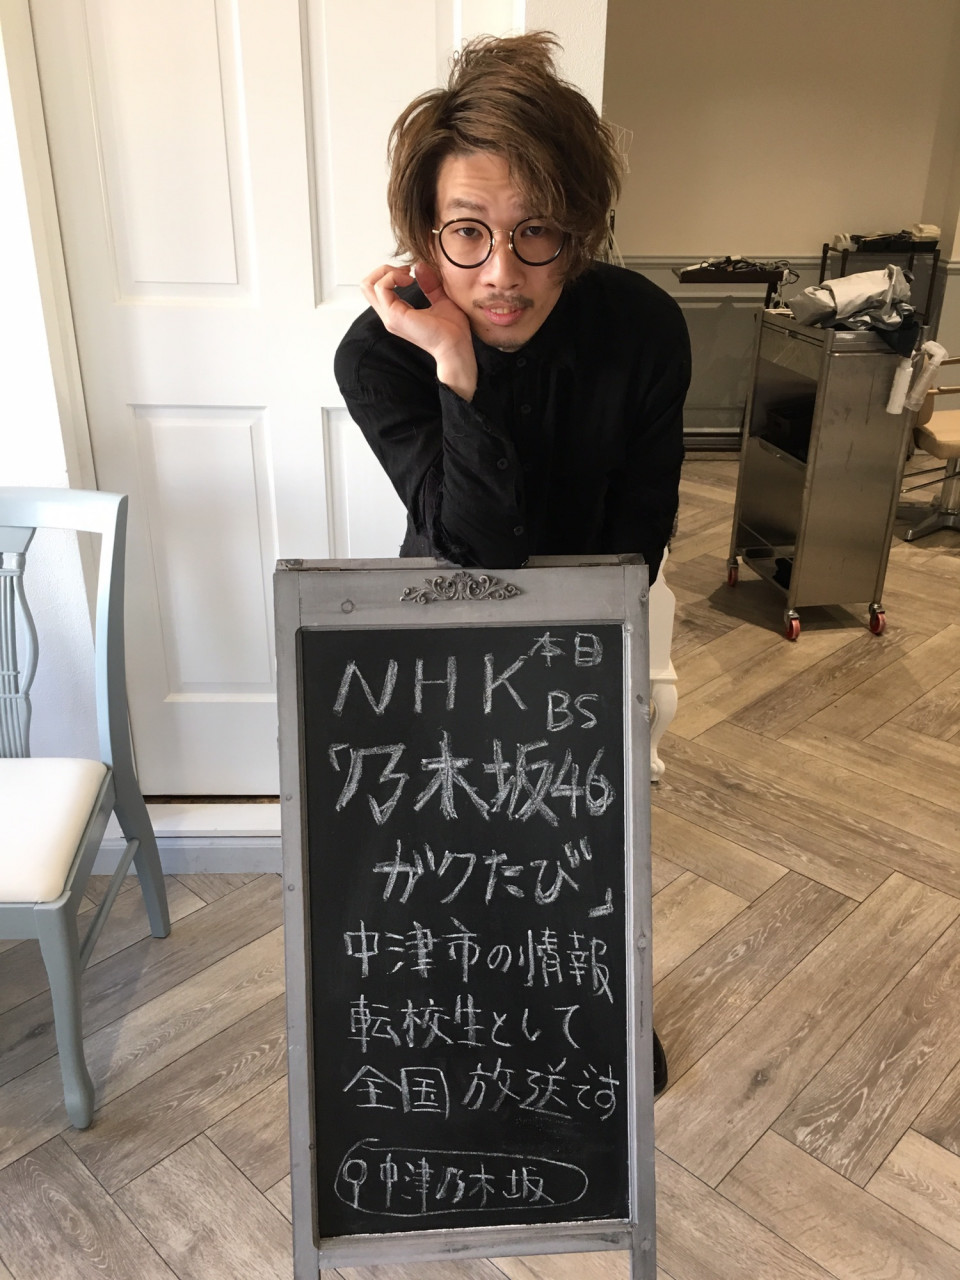 NHK 本日
BS
「乃木坂46
ガクたび」
中津市の情報
転校生として
全国放送です
中津乃木坂